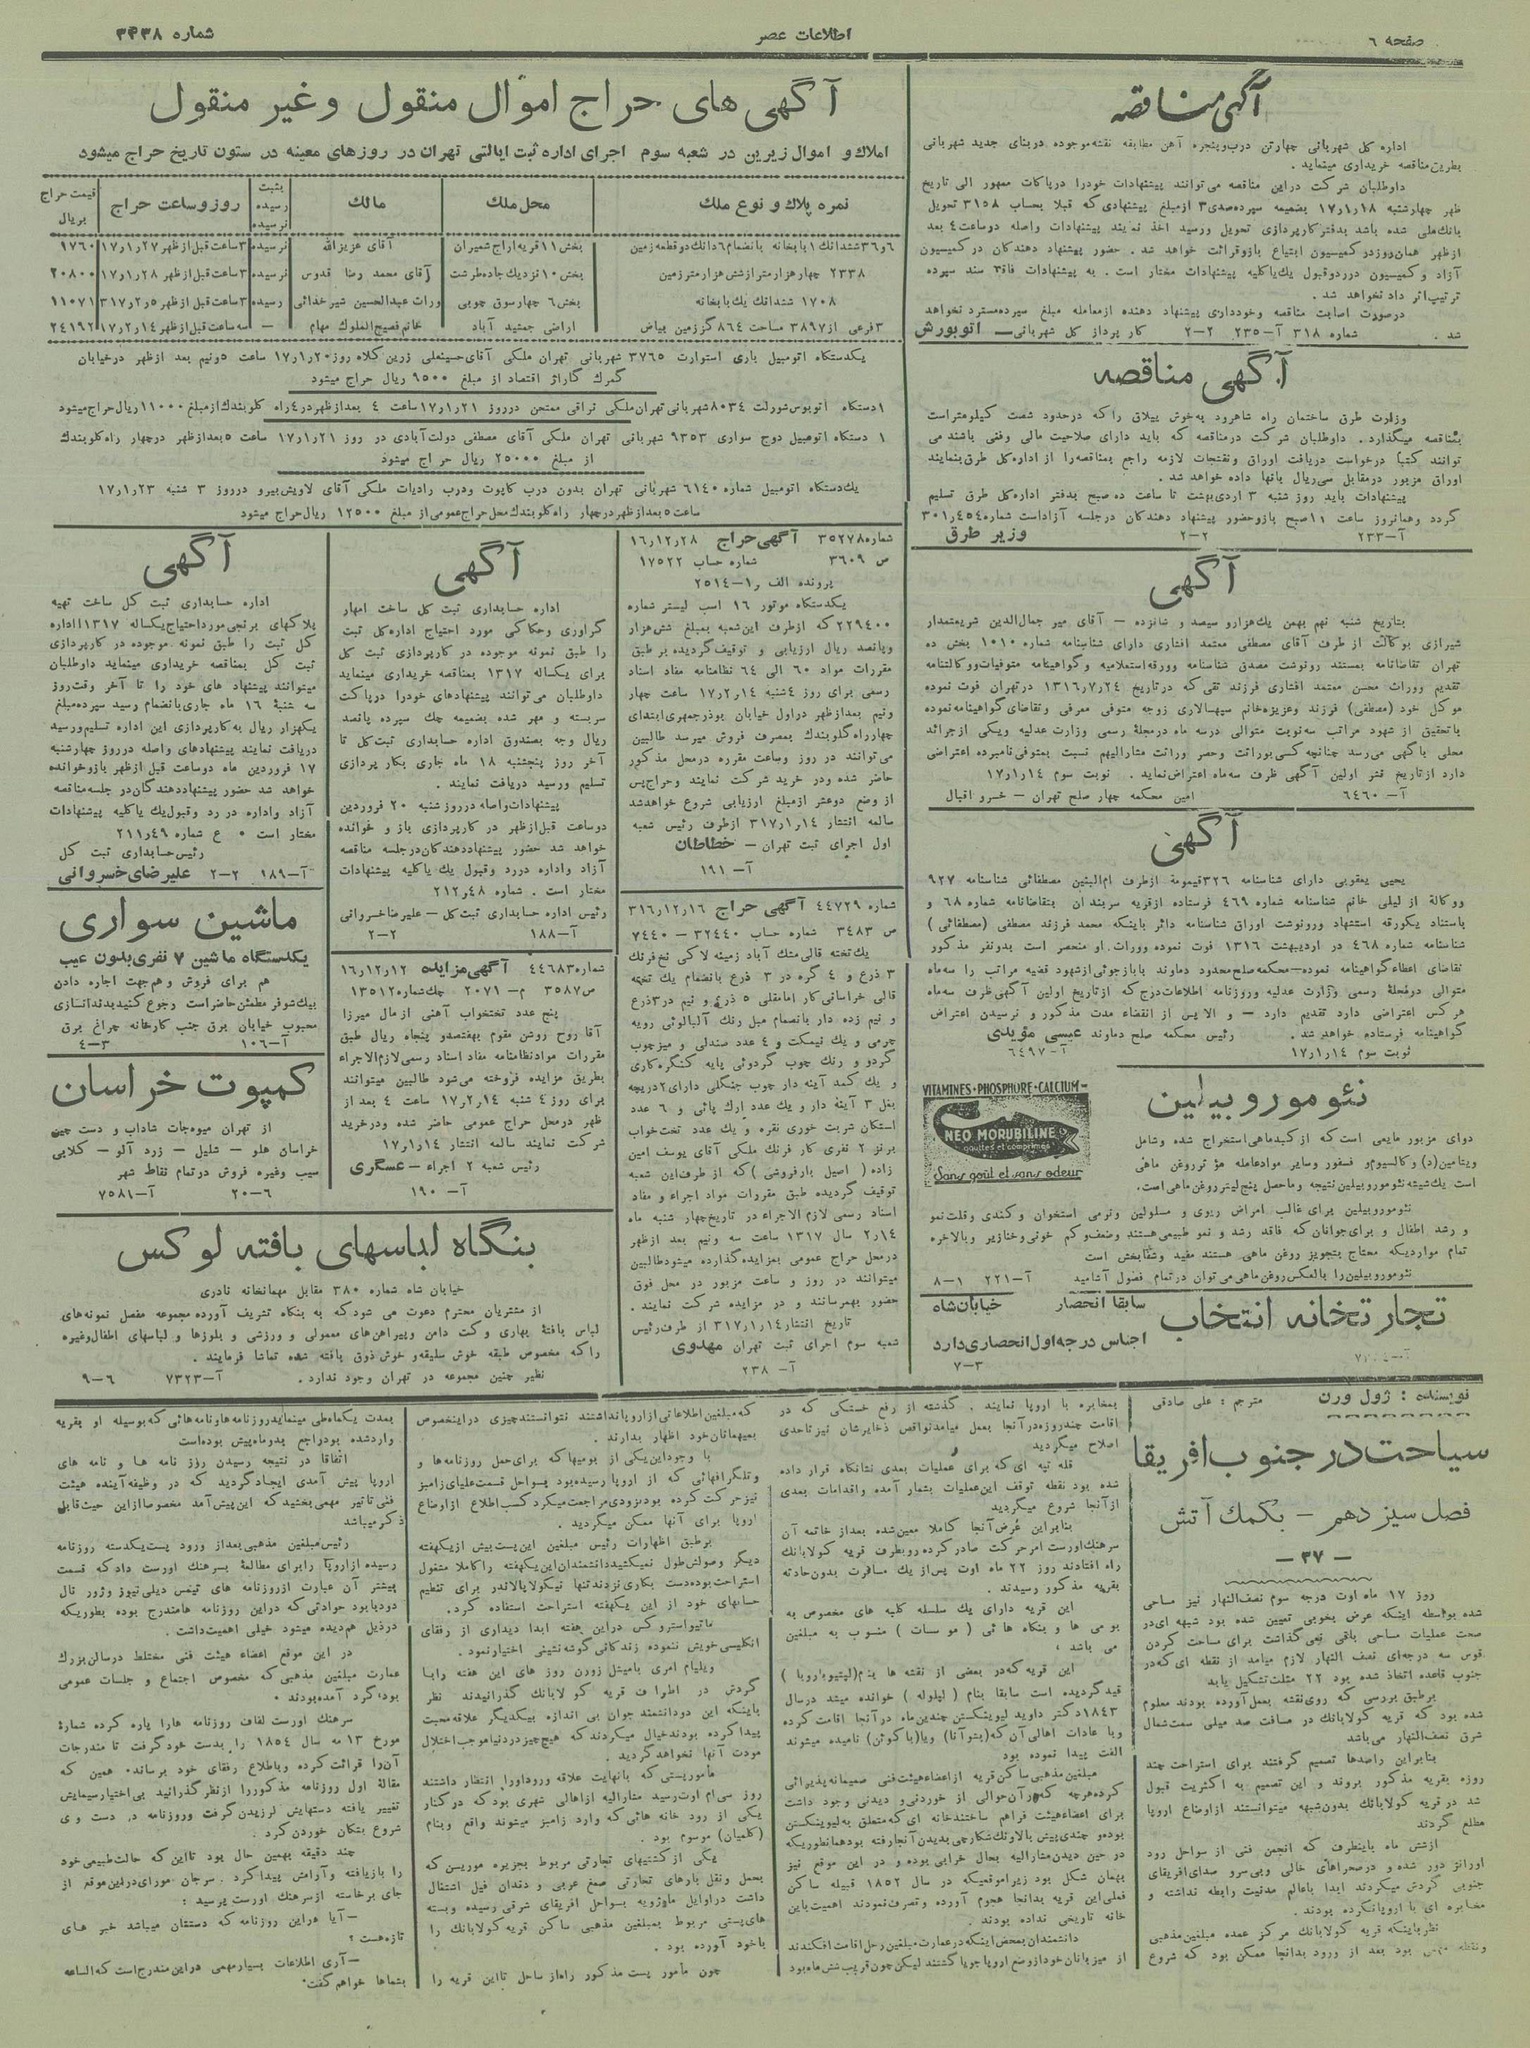 صفحه ٦
اطلاعات عصر
شماره ٣٤٣٨
آگهی مناقصه
اداره کل شهربانی چهارتن درب‌وپنجره آهن مطابقه نقشه موجوده دربنای جدید شهربانی
بطریق مناقصه خریداری مینماید .
داوطلبان شرکت دراین مناقصه می‌توانند پیشنهادات خودرا درپاکات ممهور الی تاریخ
ظهر چهارشنبه ١٧ر١ر١٨ بضمیمه سپرده صدی ٣ ازمبلغ پیشنهادی که قبلا بحساب ٣١٥٨ تحویل
بانک‌ملی شده باشد بدفتر کارپردازی تحویل ورسید اخذ نمایند پیشنهادات واصله دوساعت ٤ بعد
ازظهر همان‌روز در کمیسیون ابتیاع بازوقرائت خواهد شد . حضور پیشنهاد دهندگان درکمیسیون
آزاد و کمیسیون دررد و قبول یک یا کلیه پیشنهادات مختار است . به پیشنهادات فاقد سند سپرده
ترتیب‌اثر داد نخواهد شد .
درصورت اصابت مناقصه وخودداری پیشنهاد دهنده ازمعامله مبلغ سپرده‌مسترد نخواهد
شد . شماره ٣١٨ آ—٢٣٥ ٢—٢ کار پرداز کل شهربانی — اتوبورش
آگهی مناقصه
وزارت طرق ساختمان راه شاهرود به‌خوش ییلاق راکه درحدود شصت کیلومتراست
بمناقصه میگذارد . داوطلبان شرکت درمناقصه که باید دارای صلاحیت مالی وفنی باشند می
توانند کتبا درخواست دریافت اوراق ونقشجات لازمه راجع بمناقصه‌را از اداره‌کل طرق بنمایند
اوراق مزبور درمقابل سی‌ریال بانها داده خواهد شد .
پیشنهادات باید روز شنبه ٣ اردی‌بهشت تا ساعت ده صبح بدفتر اداره‌کل طرق تسلیم
گردد وهمانروز ساعت ١١صبح بازوحضور پیشنهاد دهندگان درجلسه آزاداست شماره ٤٥٤ر٣٠١
آ—٢٣٣ ٢—٢ وزیر طرق
آگهی
بتاریخ شنبه نهم بهمن یك‌هزارو سیصد و شانزده — آقای میر جمال‌الدین شریعتمدار
شیرازی بوکالت از طرف آقای مصطفی معتمد افتاری دارای شناسنامه شماره ١٠١٠ بخش ده
تهران تقاضانامه بمستند رونوشت مصدق شناسنامه وورقه‌استعلامیه وگواهینامه متوفیات‌ووکالتنامه
تقدیم ووراث محسن معتمد افتاری فرزند تقی که درتاریخ ٢٤ر٧ر١٣١٦ درتهران فوت نموده
موکل خود (مصطفی) فرزند وعزیزه‌خانم سپهسالاری زوجه متوفی معرفی وتقاضای گواهینامه‌نموده
باتحقیق از شهود مراتب سه‌نوبت متوالی درسه ماه درمجلهٔ رسمی وزارت عدلیه ویکی ازجرائد
محلی باگهی می‌رسد چنانچه کسی بوراثت وحصر وراثت مشارالیهم نسبت بمتوفی‌نامبرده اعتراضی
دارد ازتاریخ نشر اولین آگهی ظرف سه‌ماه اعتراض‌نماید . نوبت سوم ١٤ر١ر١٧
آ— ٦٤٦٠ امین محکمه چهار صلح تهران — خسرو اقبال
آگهی
یحیی یعقوبی دارای شناسنامه ٣٢٦ قیمومة ازطرف ام‌البنین مصطفائی شناسنامه ٩٢٧
ووکالة از لیلی خانم شناسنامه شماره ٤٦٩ فرستاده ازقریه سربندان بتقاضانامه شماره ٦٨ و
باستناد یکورقه استشهاد ورونوشت اوراق شناسنامه دائر باینکه محمد فرزند مصطفی (مصطفائی)
شناسنامه شماره ٤٦٨ در اردیبهشت ١٣١٦ فوت نموده ووراث او منحصر است بدونفر مذکور
تقاضای اعطاءگواهینامه نموده—محکمه‌صلح‌محدود دماوند بابازجوئی‌ازشهود قضیه مراتب را سه‌ماه
متوالی درمجلهٔ رسمی وزارت عدلیه وروزنامه اطلاعات‌درج‌که ازتاریخ اولین آگهی‌ظرف سه‌ماه
هرکس اعتراضی دارد تقدیم دارد — و الا پس از انقضاء مدت مذکور و نرسیدن اعتراض
گواهینامه فرستاده خواهد شد. رئیس محکمه صلح دماوند عیسی مؤیدی
نوبت سوم ١٤ر١ر١٧ آ—٦٤٩٧
نئوموروبیلین
VITAMINES•PHOSPHORE•CALCIUM
NEO MORUBILINE
gouttes et comprimés
Sans goût et sans odeur
دوای مزبور مایعی است که ازکبدماهی استخراج شده وشامل
ویتامین(د) وکالسیوم‌و فسفور وسایر موادعامله مؤ ثرروغن ماهی
است یك‌شیشه نئوموروبیلین نتیجه وماحصل پنج‌لیترروغن‌ماهی‌است.
نئوموروبیلین برای غالب امراض ریوی و مسلولین ونرمی استخوان وکندی وقلت نمو
و رشد اطفال و برای‌جوانان‌که فاقد رشد و نمو طبیعی هستند وضعف‌وکم خونی‌وخنازیر وبالاخره
تمام مواردیکه محتاج بتجویز روغن ماهی هستند مفید وشفابخش است
نئوموروبیلین‌را بالعکس‌روغن‌ماهی‌می‌توان درتمام فصول آشامید آ—٢٢١ ١—٨
تجارتخانه انتخاب
سابقا انحصار خیابان‌شاه
اجناس درجه‌اول‌انحصاری‌دارد
٣—٧
آگهی های حراج اموال منقول وغیر منقول
املاك و اموال زیرین در شعبه سوم اجرای اداره ثبت ایالتی تهران در روزهای معینه در ستون تاریخ حراج میشود
نمره پلاك و نوع ملك | محل ملك | مالك | بثبت رسیده نرسیده | روز وساعت حراج | قیمت حراج بریال
٦و٣٦ ششدانك ١ بابخانه بانضمام ٦دانك دوقطعه زمین | بخش ١١ قریه اراج شمیران | آقای عزیزالله | نرسیده | ٣ساعت قبل‌ازظهر ٢٧ر١ر١٧ | ١٧٦٠
٢٣٣٨ چهارهزارمترازشش‌هزارمترزمین | بخش ١٠ نزدیك جاده طرشت | آقای محمد رضا قدوس | نرسیده | ٣ساعت قبل‌ازظهر ٢٨ر١ر١٧ | ٢٠٨٠٠
١٧٠٨ ششدانك یك بابخانه | بخش ٦ چهارسوق چوبی | وراث عبدالحسین شیرخدائی | رسیده | ٣ساعت قبل‌ازظهر ٥ر٢ر٣١٧ | ١١٠٧١
٣ فرعی از ٣٨٩٧ مساحت ٨٦٤ گززمین بیاض | اراضی جمشید آباد | خانم فصیح‌الملوك مهام | — | سه ساعت قبل‌ازظهر ١٤ر٢ر١٧ | ٢٤١٩٢
یکدستگاه اتومبیل باری استوارت ٣٧٦٥ شهربانی تهران ملکی آقای حسینعلی زرین‌کلاه روز ٢٠ر١ر١٧ ساعت ٥ونیم بعد ازظهر درخیابان
گمرك گاراژ اقتصاد از مبلغ ٩٥٠٠ ریال حراج میشود
١دستگاه اتوبوس‌شورلت ٨٠٣٤شهربانی تهران‌ملکی نراقی ممتحن درروز ٢١ر١ر١٧ساعت ٤ بعدازظهر در٤راه گلوبندك‌ازمبلغ ١١٠٠٠ریال‌حراج‌میشود
١ دستگاه اتومبیل دوج سواری ٩٣٥٣ شهربانی تهران ملکی آقای مصطفی دولت‌آبادی در روز ٢١ر١ر١٧ ساعت ٥بعدازظهر درچهار راه‌گلوبندك
از مبلغ ٢٥٠٠٠ ریال حراج میشود
یك‌دستگاه اتومبیل شماره ٦١٤٠ شهربانی تهران بدون درب کاپوت ودرب رادیات ملکی آقای لاویش‌بیرو درروز ٣ شنبه ٢٣ر١ر١٧
ساعت ٥ بعدازظهر درچهار راه گلوبندك‌محل‌حراج‌عمومی‌از مبلغ ١٢٥٠٠ ریال‌حراج میشود
شماره ٣٥٢٧٨ آگهی حراج ٢٨ر١٢ر١٦
ص ٣٦٠٩ شماره حساب ١٧٥٢٢
پرونده الف ر١—٢٥١٤
یکدستگاه موتور ١٦ اسب لیستر شماره
٢٢٩٤٠٠ که ازطرف این‌شعبه بمبلغ شش‌هزار
وپانصد ریال ارزیابی و توقیف‌گردیده برطبق
مقررات مواد ٦٠ الی ٦٤ نظامنامه مفاد اسناد
رسمی برای روز ٤شنبه ١٤ر٢ر١٧ ساعت چهار
ونیم بعدازظهر دراول خیابان بوذرجمهری‌ابتدای
چهارراه‌گلوبندك بمصرف فروش میرسد طالبین
می‌توانند در روز وساعت مقرره درمحل مذکور
حاضر شده ودر خرید شرکت نمایند وحراج‌پس
از وضع دوعشر ازمبلغ ارزیابی شروع خواهدشد
سالمه انتشار ١٤ر١ر٣١٧ ازطرف رئیس شعبه
اول اجرای ثبت تهران — خطاطان
آ— ١٩١
شماره ٤٤٧٢٩ آگهی حراج ١٦ر١٢ر٣١٦
ص ٣٤٨٣ شماره حساب ٣٢٤٤٠ — ٧٤٤٠
یك‌تخته قالی مشك آباد زمینه لاکی نخ‌فرنك
٣ ذرع و ٤ گره در ٣ ذرع بانضمام یك تخته
قالی خراسانی کار امامقلی ٥ ذرع و نیم در٣ذرع
و نیم زده دار بانضمام مبل رنك آلبالوئی رویه
چرمی و یك نیمکت و ٤ عدد صندلی و میزچوب
گردو و رنك چوب گردوئی پایه کنگره‌کاری
و یك کمد آینه دار چوب جنگلی دارای ٢دریچه
بغل ٣ آینه دار و یك عدد ارك پائی و ٦ عدد
استکان شربت خوری نقره و یك عدد تخت‌خواب
برنز ٢ نفری کار فرنك ملکی آقای یوسف امین
زاده ( اصیل بارفروشی) که ازطرف‌این شعبه
توقیف گردیده طبق مقررات مواد اجراء و مفاد
اسناد رسمی لازم الاجراء در تاریخ‌چهار شنبه ماه
١٤ر٢ سال ١٣١٧ ساعت سه ونیم بعد ازظهر
درمحل حراج عمومی بمزایده‌گذارده میشودطالبین
میتوانند در روز و ساعت مزبور در محل فوق
حضور بهمرسانند و در مزایده شرکت نمایند .
تاریخ انتشار ١٤ر١ر٣١٧ از طرف‌رئیس
شعبه سوم اجرای ثبت تهران مهدوی
آ— ٢٣٨
آگهی
اداره حسابداری ثبت کل ساخت امهار
گراوری وحکاکی مورد احتیاج اداره‌کل ثبت
را طبق نمونه موجوده در کارپردازی ثبت کل
برای یکساله ١٣١٧ بمناقصه خریداری مینماید
داوطلبان می‌توانند پیشنهادهای خودرا درپاکت
سربسته و مهر شده بضمیمه چك سپرده پانصد
ریال وجه بصندوق اداره حسابداری ثبت‌کل تا
آخر روز پنجشنبه ١٨ ماه جاری بکار پردازی
تسلیم ورسید دریافت نمایند .
پیشنهادات‌واصله درروز شنبه ٢٠ فروردین
دوساعت قبل‌ازظهر در کارپردازی باز و خوانده
خواهد شد حضور پیشنهاددهندگان درجلسه مناقصه
آزاد واداره دررد وقبول یك یاکلیه پیشنهادات
مختار است . شماره ٤٨ر٢١٢
رئیس اداره حسابداری ثبت‌کل — علیرضاخسروانی
آ—١٨٨ ٢—٢
شماره ٤٤٦٨٣ آگهی مزایده ١٢ر١٢ر١٦
ص ٣٥٨٧ م— ٢٠٧١ چك‌شماره ١٣٥١٢
پنج عدد تختخواب آهنی ازمال میرزا
آقا روح روشن مقوم بهفتصدو پنجاه ریال طبق
مقررات موادنظامنامه مفاد اسناد رسمی‌لازم‌الاجراء
بطریق مزایده فروخته می‌شود طالبین میتوانند
برای روز ٤ شنبه ١٤ر٢ر١٧ ساعت ٤ بعد از
ظهر درمحل حراج عمومی حاضر شده ودرخرید
شرکت نمایند سالمه انتشار ١٤ر١ر١٧
رئیس شعبه ٢ اجراء — عسگری
آ— ١٩٠
آگهی
اداره حسابداری ثبت کل ساخت تهیه
پلاکهای برنجی مورداحتیاج یکساله ١٣١٧اداره
کل ثبت را طبق نمونه موجوده در کارپردازی
ثبت کل بمناقصه خریداری مینماید داوطلبان
میتوانند پیشنهاد های خود را تا آخر وقت‌روز
سه شنبهٔ ١٦ ماه جاری بانضمام رسید سپرده‌مبلغ
یکهزار ریال به‌کارپردازی این اداره تسلیم‌ورسید
دریافت نمایند پیشنهادهای واصله درروز چهارشنبه
١٧ فروردین ماه دوساعت قبل ازظهر بازوخوانده
خواهد شد حضور پیشنهاددهندگان در جلسه‌مناقصه
آزاد واداره در رد وقبول‌یك یاکلیه پیشنهادات
مختار است . ع شماره ٤٩ر٢١١
رئیس‌حسابداری ثبت کل
آ—١٨٩ ٢—٢ علیرضای‌خسروانی
ماشین سواری
یکدستگاه ماشین ٧ نفری بدون عیب
هم برای فروش و هم‌جهت اجاره دادن
بیك‌شوفر مطمئن‌حاضراست رجوع کنید بدندانسازی
محبوب خیابان برق جنب کارخانه چراغ برق
آ—١٠٦ ٣—٤
کمپوت خراسان
از تهران میوه‌جات شاداب و دست چین
خراسان هلو — شلیل — زرد آلو — گلابی
سیب وغیره فروش درتمام نقاط شهر
آ—٧٥٨١ ٦—٢٠
بنگاه لباسهای بافته لوکس
خیابان شاه شماره ٣٨٠ مقابل مهمانخانه نادری
از مشتریان محترم دعوت می شودکه به بنگاه تشریف آورده مجموعه مفصل نمونه‌های
لباس بافتهٔ بهاری وکت دامن وپیراهن‌های معمولی و ورزشی و بلوزها و لباسهای اطفال‌وغیره
راکه مخصوص طبقه خوش سلیقه‌و خوش ذوق بافته شده تماشا فرمایند .
نظیر چنین مجموعه در تهران وجود ندارد . آ—٧٣٢٣ ٦—٩
نویسنده : ژول ورن مترجم : علی صادقی
سیاحت در جنوب افریقا
فصل سیزدهم — بکمك آتش
— ٣٧ —
روز ١٧ ماه اوت درجه سوم نصف‌النهار نیز مساحی
شده بواسطه اینکه عرض بخوبی تعیین شده بود شبهه ای‌در
صحت عملیات مساحی باقی نمی‌گذاشت برای مساحت کردن
قوس سه درجه‌ای نصف النهار لازم میامد از نقطه ای‌که‌در
جنوب قاعده اتخاذ شده بود ٢٢ مثلث‌تشکیل یابد
برطبق بررسی که روی‌نقشه بعمل‌آورده بودند معلوم
شده بود که قریه کولابانك در مسافت صد میلی سمت‌شمال
شرق نصف‌النهار می‌باشد
بنابراین راصدها تصمیم گرفتند برای استراحت چند
روزه بقریه مذکور بروند و این تصمیم به اکثریت قبول
شد درقریه کولابانك بدون‌شبهه میتوانستند ازاوضاع اروپا
مطلع گردند
ازشش ماه باینطرف که انجمن فنی از سواحل رود
اورانژ دور شده و درصحراهای خالی وبی‌سرو صدای‌افریقای
جنوبی گردش میکردند ابدا باعالم مدنیت رابطه نداشته و
مخابره ای با اروپانکرده بودند .
نظرباینکه قریه کولابانك مرکز عمده مبلغین‌مذهبی
بود بعد از ورود بدانجا ممکن بود که شروع
بمخابره با اروپا نمایند . گذشته از رفع خستگی که در
اقامت چندروزه‌درآنجا بعمل میامدنواقص ذخایرشان نیزتاحدی
اصلاح میگردید
قله تپه ای‌که برای عملیات بعدی نشانگاه قرار داده
شده بود نقطه توقف این‌عملیات بشمار آمده واقدامات بعدی
ازآنجا شروع میگردید
بنابراین عرض‌آنجا کاملا معین‌شده بعداز خاتمه آن
سرهنك‌اورست امرحرکت صادرکرده‌روبطرف قریه کولابانك
راه افتادند روز ٢٢ ماه اوت پس‌از یك مسافرت بدون‌حادثه
بقریه مذکور رسیدند .
این قریه دارای یك سلسله کلبه های مخصوص به
بومی ها و بنگاه هائی ( موسسات ) منسوب به مبلغین
می باشد ،
این قریه‌که‌در بعضی از نقشه ها بنام(لیتیوباروبا)
قیدگردیده است سابقا بنام ( لپلوله ) خوانده میشد درسال
١٨٤٣ دکتر داوید لیوینگستن چندین‌ماه درآنجا اقامت کرده
وبا عادات اهالی‌آن‌که(بتوآنا) ویا(باکوئن) نامیده میشوند
الفت پیدا نموده بود
مبلغین مذهبی ساکن قریه ازاعضاءهیئت فنی صمیمانه‌پذیرائی
کرده‌هرچه که‌درآن‌حوالی از خوردنی‌و دیدنی وجود داشت
برای اعضاءهیئت فراهم ساختندخانه ای‌که‌متعلق به‌لیوینگستن
بوده‌و چندی‌پیش بالاونك‌شکارچی بدیدن آنجارفته بودهمانطوریکه
در حین دیدن‌مشارالیه بحال خرابی بوده‌و در این موقع نیز
بهمان شکل بود زیراموقعیکه در سال ١٨٥٢ قبیله ساکن
فعلی‌این قریه بدانجا هجوم آورده وتصرف‌نمودند اهمیت‌باین
خانه تاریخی نداده بودند .
دانشمندان بمحض‌اینکه‌درعمارت مبلغین رحل‌اقامت‌افکندند
از میزبانان‌خودازوضع اروپا جویاگشتند لیکن‌چون‌قریب‌شش‌ماه‌بود
که‌مبلغین‌اطلاعاتی‌ازاروپانداشتند نتوانستندچیزی دراینخصوص
بمیهمانان‌خود اظهار بدارند .
با وجوداین‌یکی از بومیهاکه برای‌حمل روزنامه‌ها و
وتلگرافهائی که از اروپا رسیده‌بود بسواحل قسمت‌علیای‌زامبز
نیزحرکت کرده بودبزودی‌مراجعت‌میکرد کسب‌اطلاع ازاوضاع
اروپا برای آنها ممکن میگردید .
برطبق اظهارات رئیس مبلغین این‌پست‌بیش ازیکهفته
دیگر وصولش‌طول نمیکشیددانشمندان‌این‌یکهفته راکاملا مشغول
استراحت‌بوده‌دست بکاری‌نزدندتنها نیکولاپالاندر برای تنظیم
حسابهای خود از این یکهفته استراحت استفاده کرد.
ماتیواستروکس دراین هفته ابدا دیداری از رفقای
انگلیسی‌خویش ننموده زندگانی‌گوشه‌نشینی اختیارنمود.
ویلیام امری بامیشل زورن روز های این هفته رابا
گردش در اطراف قریه کولابانك گذرانیدند نظر
باینکه این دودانشمند جوان بی اندازه بیکدیگر علاقه‌محبت
پیداکرده بودندخیال میکردندکه هیچ‌چیزدردنیاموجب‌اختلال
مودت آنها نخواهدگردید .
مأمورپستی‌که بانهایت علاقه وروداورا انتظار داشتند
روز سی‌ام اوت‌رسید مشارالیه ازاهالی شهری بودکه درکنار
یکی از رود خانه هائی‌که وارد زامبز میشوند واقع وبنام
(کلمیان) موسوم بود .
یکی ازکشتیهای تجارتی مربوط بجزیره موریس که
بحمل ونقل بارهای تجارتی صمغ عربی و دندان فیل اشتغال
داشت دراوایل ماه‌ژویه بسواحل افریقای شرقی رسیده وبسته
های‌پستی مربوط بمبلغین مذهبی ساکن قریه‌کولابانك را
باخود آورده بود .
چون مأمور پست مذکور راه‌از ساحل تااین قریه را
بمدت یکماه‌طی مینمایدروزنامه هاونامه‌هائی‌که‌بوسیله او بقریه
واردشده بودراجع بدوماه‌پیش بوده‌است
اتفاقا در نتیجه رسیدن روزنامه ها و نامه های
اروپا پیش آمدی ایجادگردید که در وظیفه‌آینده هیئت
فنی‌تاثیر مهمی‌بخشید که این‌پیش‌آمد مخصوصاازاین حیث‌قابل
ذکرمیباشد
رئیس‌مبلغین مذهبی‌بعداز ورود پست‌یکدسته روزنامه
رسیده ازاروپارابرای مطالعهٔ بسرهنك اورست دادکه قسمت
پیشتر آن عبارت ازروزنامه های تیمس دیلی‌نیوز وژور نال
دودبابود حوادثی‌که دراین روزنامه هامندرج بوده بطوریکه
درذیل هم‌دیده میشود خیلی اهمیت‌داشت .
در این موقع اعضاء هیئت فنی مختلط درسالن‌بزرك
عمارت مبلغین مذهبی‌که مخصوص اجتماع و جلسات عمومی
بود،گرد آمده‌بودند .
سرهنك اورست لفاف روزنامه هارا پاره کرده شمارهٔ
مورخ ١٣ مه سال ١٨٥٤ را بدست خودگرفت تا مندرجات
آن‌را قرائت کرده وباطلاع رفقای خود برساند، همین که
مقالهٔ اول روزنامه مذکوررا ازنظرگذرانید بی‌اختیارسیمایش
تغییر یافته دستهایش لرزیدن‌گرفت وروزنامه در دست وی
شروع بتکان خوردن‌کرد .
چند دقیقه بهمین حال بود تااین‌که حالت‌طبیعی‌خود
را بازیافته وآرامش پیداکرد. سرجان مورای‌دراین‌موقع از
جای برخاسته ازسرهنك اورست پرسید :
— آیا دراین روزنامه که دستتان میباشد خبر های
تازه‌هست ؟
— آری اطلاعات بسیارمهمی دراین‌مندرج‌است‌که‌الساعه
بشماها خواهم‌گفت.